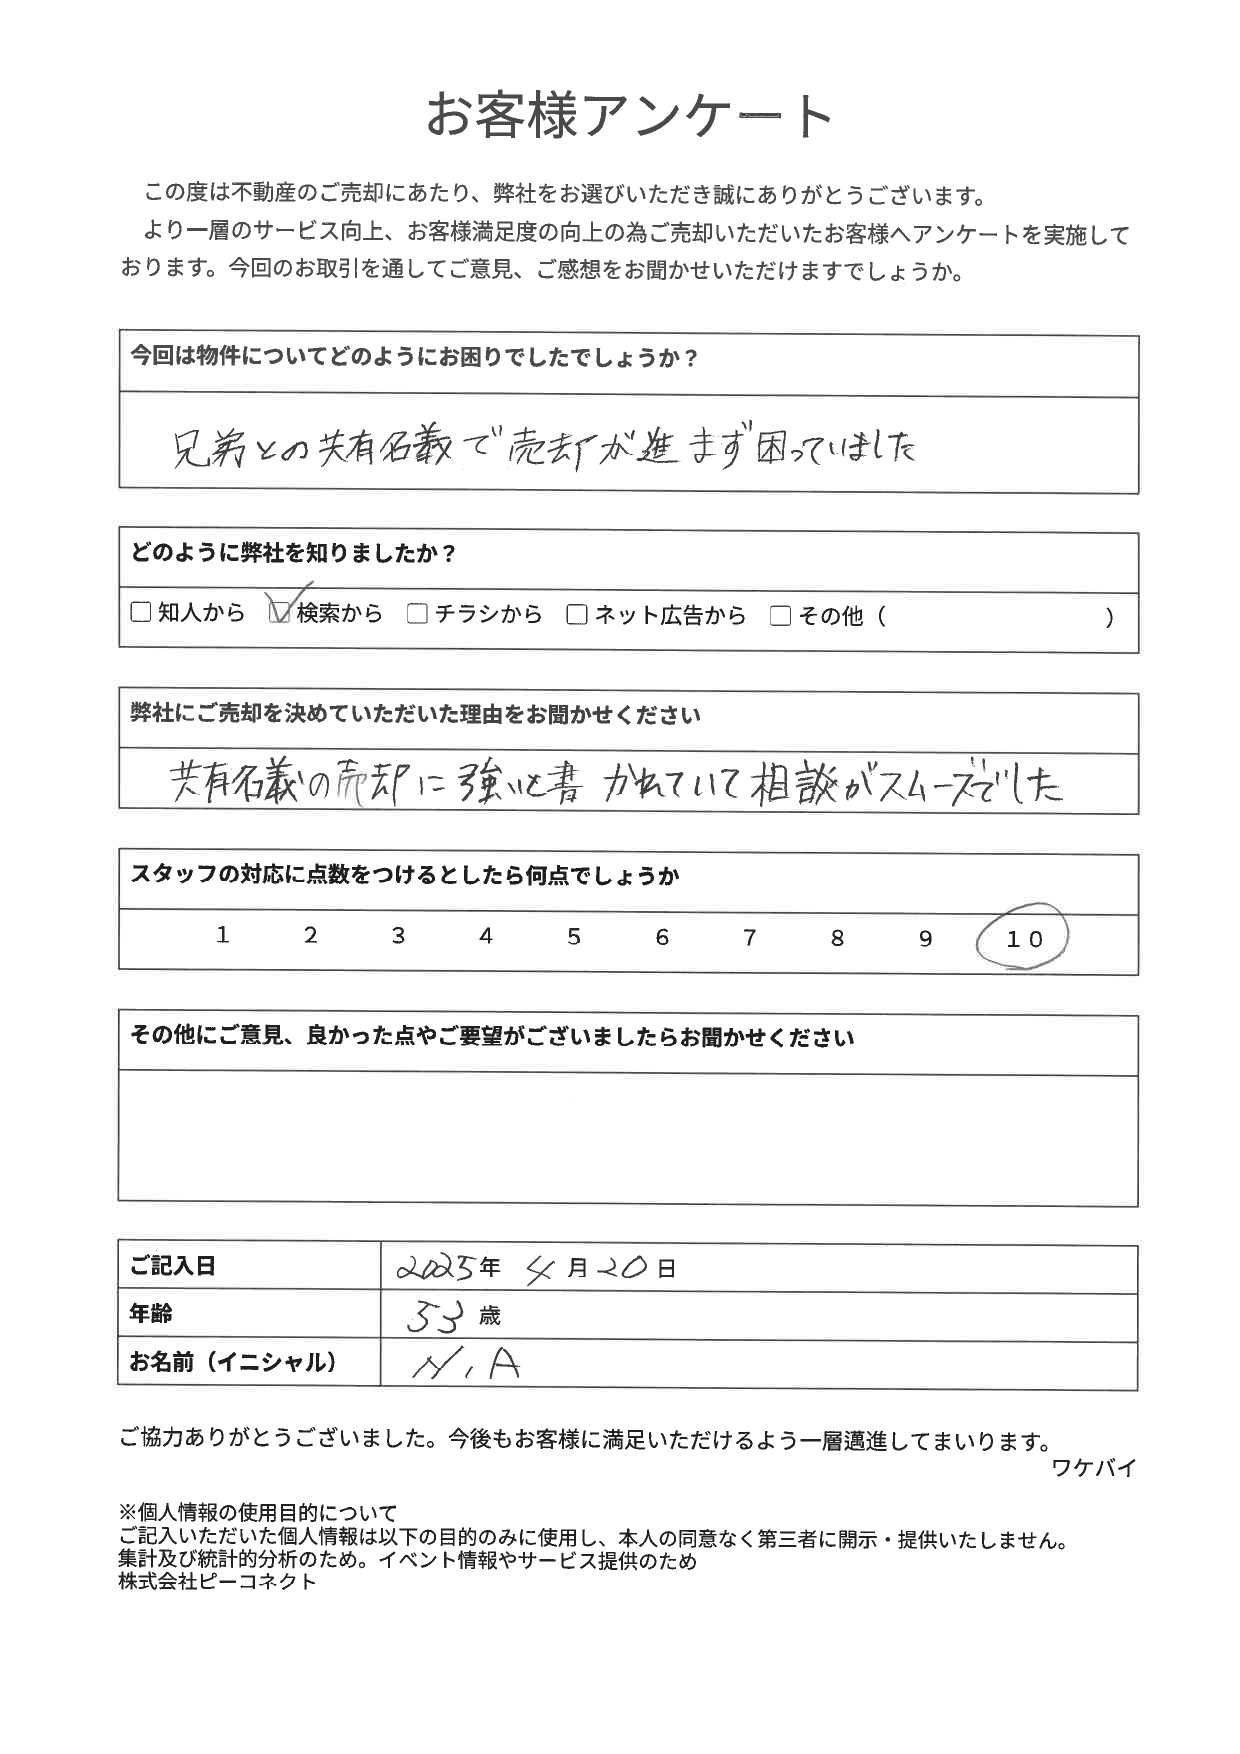 お客様アンケート
この度は不動産のご売却にあたり、弊社をお選びいただき誠にありがとうございます。
より一層のサービス向上、お客様満足度の向上の為ご売却いただいたお客様へアンケートを実施して
おります。今回のお取引を通してご意見、ご感想をお聞かせいただけますでしょうか。
今回は物件についてどのようにお困りでしたでしょうか？
兄弟との共有名義で売却が進まず困っていました
どのように弊社を知りましたか？
□ 知人から ☑ 検索から □ チラシから □ ネット広告から □ その他（ ）
弊社にご売却を決めていただいた理由をお聞かせください
共有名義の売却に強いと書かれていて相談がスムーズでした
スタッフの対応に点数をつけるとしたら何点でしょうか
1 2 3 4 5 6 7 8 9 10
その他にご意見、良かった点やご要望がございましたらお聞かせください
ご記入日 2025年 4月20日
年齢 53歳
お名前（イニシャル） N.A
ご協力ありがとうございました。今後もお客様に満足いただけるよう一層邁進してまいります。
ワケバイ
※個人情報の使用目的について
ご記入いただいた個人情報は以下の目的のみに使用し、本人の同意なく第三者に開示・提供いたしません。
集計及び統計的分析のため。イベント情報やサービス提供のため
株式会社ピーコネクト